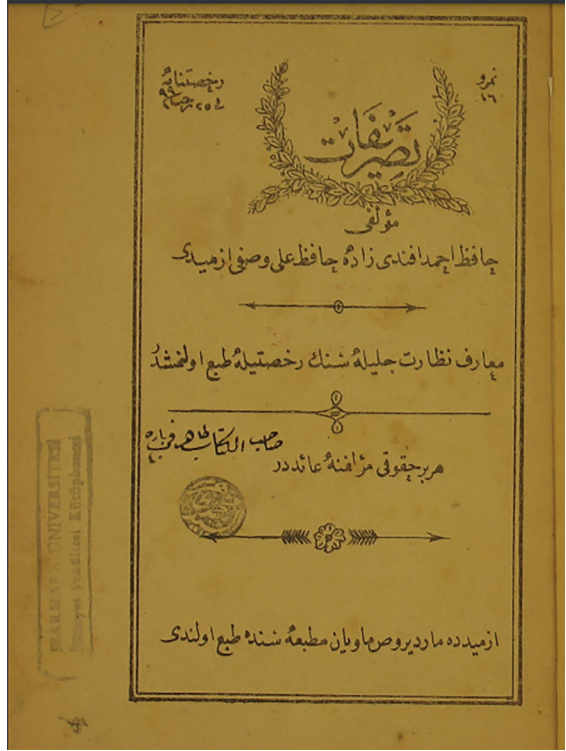 نمرو
١٦
رخصتنامهٔ
فی ٢٥ رجب ٩٩
تصریفات
مؤلفی
حافظ احمد افندی زاده حافظ علی وصفی ازمیدی
معارف نظارت جلیله‌سنك رخصتیله طبع اولنمشدر
صاحب الكتاب طاهر
هر بر حقوقی مؤلفنه عائددر
ازمیدده ماردیروص ماویان مطبعه‌سنده طبع اولندی
MARMARA ÜNİVERSİTESİ
İlahiyat Fakültesi Kütüphanesi